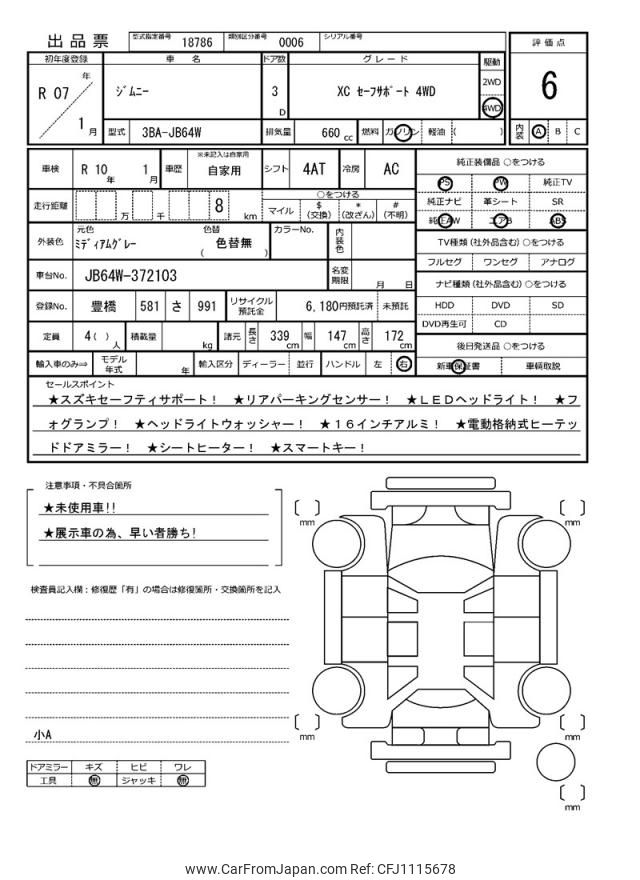 出品票 型式指定番号 18786 類別区分番号 0006 シリアル番号 評価点
初年度登録 車名 ドア数 グレード 駆動
R 07 年 ジムニー 3 D XC セーフサポート 4WD 2WD 4WD 6
1 月 型式 3BA-JB64W 排気量 660 cc 燃料 ガソリン 軽油 ( ) 内装 A B C
車検 R 10 年 1 月 車歴 ※未記入は自家用 自家用 シフト 4AT 冷房 AC 純正装備品 ○をつける
PS PW 純正TV
走行距離 万 千 8 km ○をつける
マイル $ (交換) * (改ざん) # (不明)
純正ナビ 革シート SR
純正AW エアB ABS
外装色 元色 ミディアムグレー 色替 ( 色替無 ) カラーNo. 内装色
TV種類 (社外品含む) ○をつける
フルセグ ワンセグ アナログ
車台No. JB64W-372103 名変期限 月 日
ナビ種類 (社外品含む) ○をつける
登録No. 豊橋 581 さ 991 リサイクル預託金 6,180円預託済 未預託
HDD DVD SD
DVD再生可 CD
定員 4( ) 人 積載量 kg 諸元 長さ 339 cm 幅 147 cm 高さ 172 cm
後日発送品 ○をつける
輸入車のみ⇒ モデル年式 年 輸入区分 ディーラー 並行 ハンドル 左 右
新車保証書 車輌取説
セールスポイント
★スズキセーフティサポート! ★リアパーキングセンサー! ★LEDヘッドライト! ★フ
ォグランプ! ★ヘッドライトウォッシャー! ★16インチアルミ! ★電動格納式ヒーテッ
ドドアミラー! ★シートヒーター! ★スマートキー!
注意事項・不具合箇所
★未使用車!!
★展示車の為、早い者勝ち!
検査員記入欄:修復歴「有」の場合は修復箇所・交換箇所を記入
小A
ドアミラー キズ ヒビ ワレ
工具 無 ジャッキ 無
mm
mm
mm
mm
mm
www.CarFromJapan.com Ref: CFJ1115678